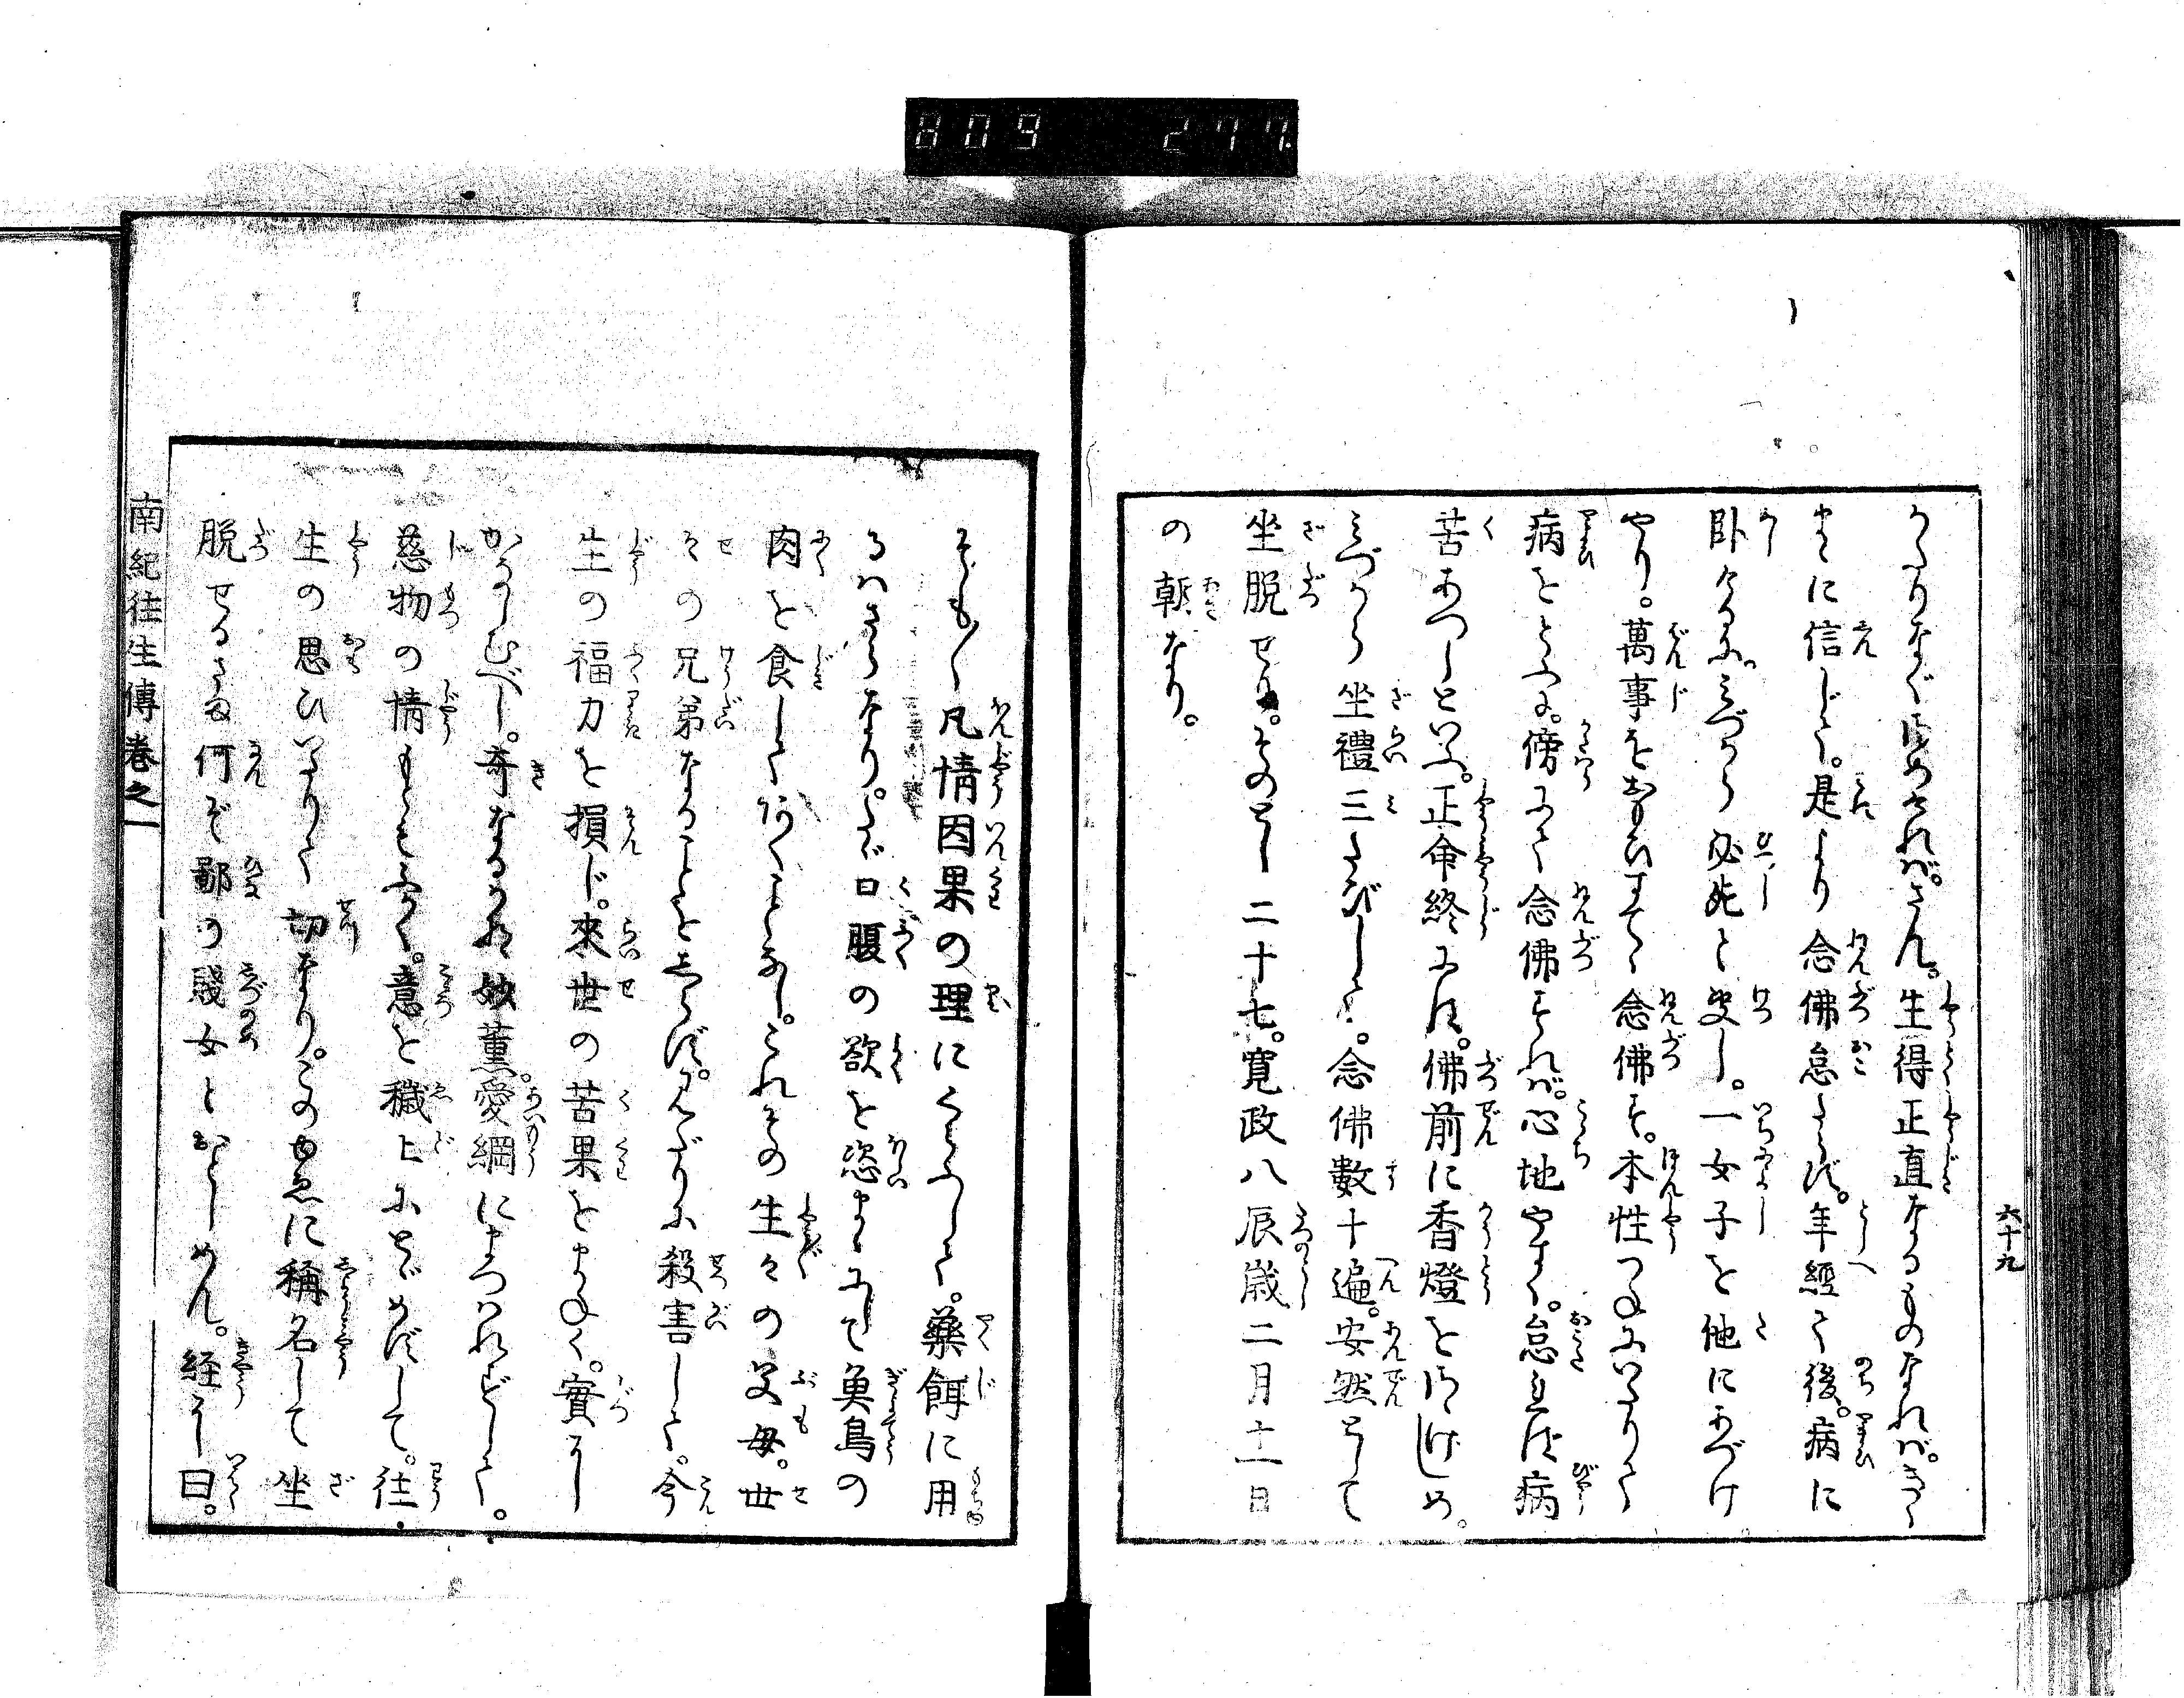 809 277.
六十九
かたりなぐさめければ。さん。生得正直なるものなれば。きく
まゝに信じて。是より念佛怠たらず。年經て後。病に
臥けるに。みづから必死と史し。一女子を他にあづけ
やり。萬事をおもひすてゝ念佛す。本性つねにいたりて
病をとふに。傍にて念佛すれば。心地やすく。怠れば病
苦あつしといふ。正命終には。佛前に香燈をはじめ。
みづから坐禮三たびして。念佛數十遍。安然として
坐脱せり。そのとし二十七。寛政八辰歳二月十一日
の朝なり。
そも〳〵凡情因果の理にくらふして。藥餌に用
るはさらなり。たゞ口腹の欲を恣まゝにして魚鳥の
肉を食してあくことなし。これその生々の父母。世
々の兄弟なることをしらず。みだりに殺害して。今
生の福力を損じ。來世の苦果をまねく。實に
かなしむべし。奇なるかな妙薫。愛綱にまつはれずして。
慈物の情もともふかく。意を穢土にとゞめずして。往
生の思ひいたりて切なり。このゆゑに稱名して坐
脱せるさま何ぞ鄙の賤女とおとしめん。経に曰。
南紀往生傳卷之一